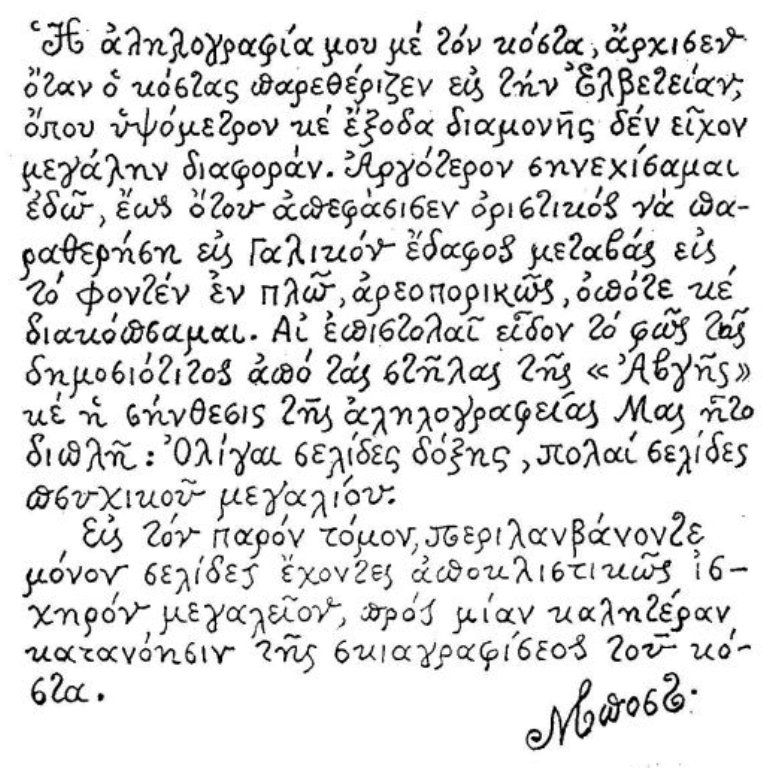 Ἡ ἀληλογραφία μου μέ τόν κόστα, ἄρχισεν
ὅταν ὁ κόστας παρεθέριζεν εἰς τήν Ἐλβετείαν,
ὅπου ὑψόμετρον κέ ἔξοδα διαμονῆς δέν εἶχον
μεγάλην διαφοράν. Ἀργότερον σηνεχίσαμαι
ἐδῶ, ἕως ὅτου ἀπεφάσισεν ὁριστικός νά πα-
ραθερήση εἰς Γαλικόν ἔδαφος μεταβάς εἰς
τό φοντέν ἐν πλῶ, ἀρεοπορικῶς, ὁπότε κέ
διακόπσαμαι. Αἱ ἐπιστολαῖ εἶδον τό φῶς τῆς
δημοσιότιτος ἀπό τάς στῆλας τῆς «Ἀβγῆς»
κέ ἡ σήνθεσις τῆς ἀληλογραφείας Μας ἦτο
διπλῆ: Ὀλίγαι σελίδες δόξης, πολαί σελίδες
πσυχικοῦ μεγαλίου.
Εἰς τόν παρόν τόμον, περιλανβάνοντε
μόνον σελίδες ἔχοντες ἀποκλιστικῶς ἰσ-
χηρόν μεγαλεῖον, πρός μίαν καλητέραν
κατανόησιν τῆς σκιαγραφίσεος τοῦ κό-
στα.
Μποστ.